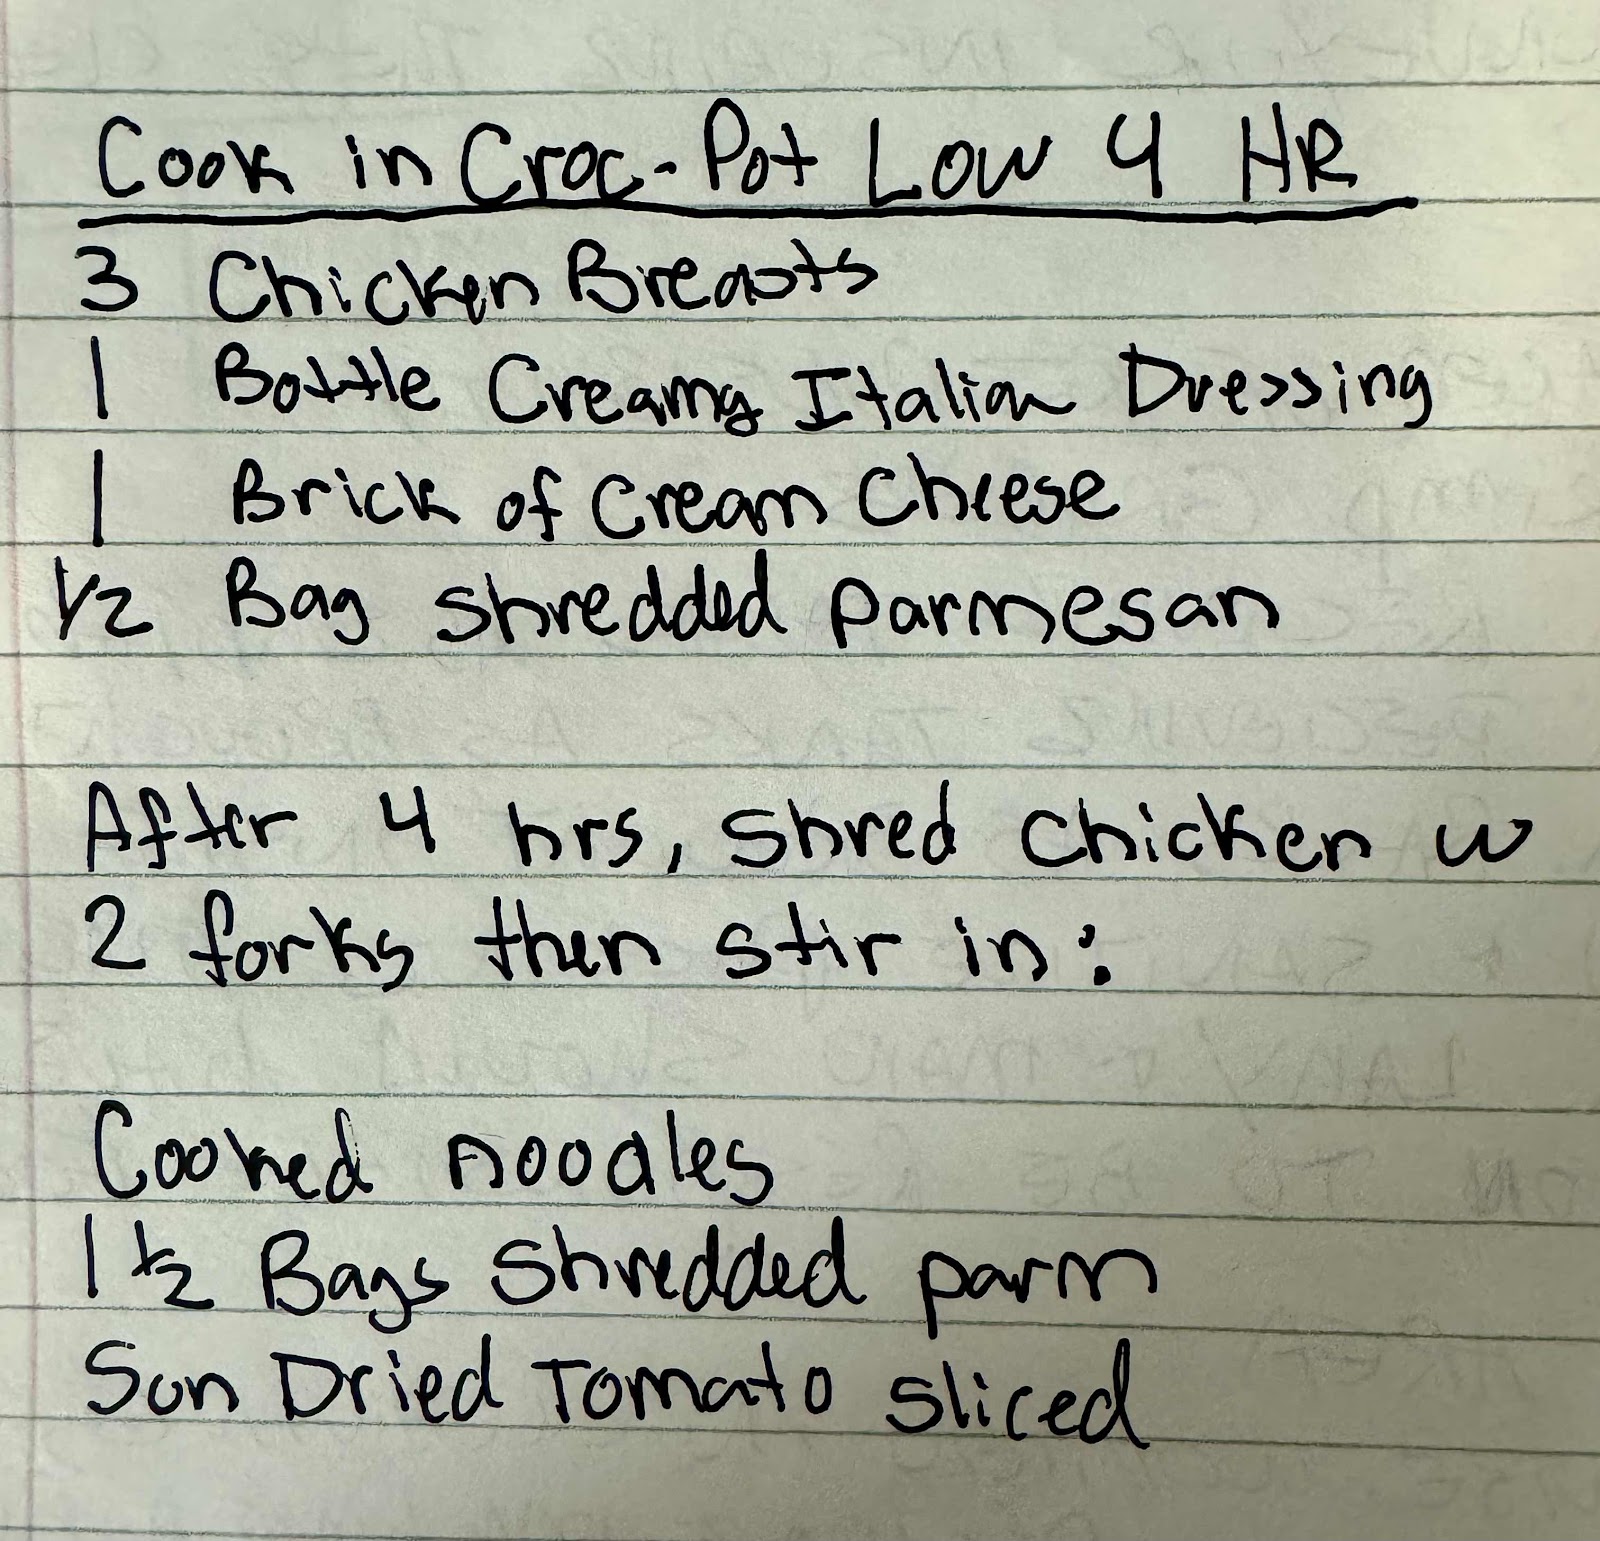 Cook in Croc-Pot Low 4 HR
3 Chicken Breasts
1 Bottle Creamy Italian Dressing
1 Brick of Cream Cheese
1/2 Bag shredded parmesan
After 4 hrs, shred chicken w
2 forks then stir in:
Cooked noodles
1 1/2 Bags shredded parm
Sun Dried Tomato sliced